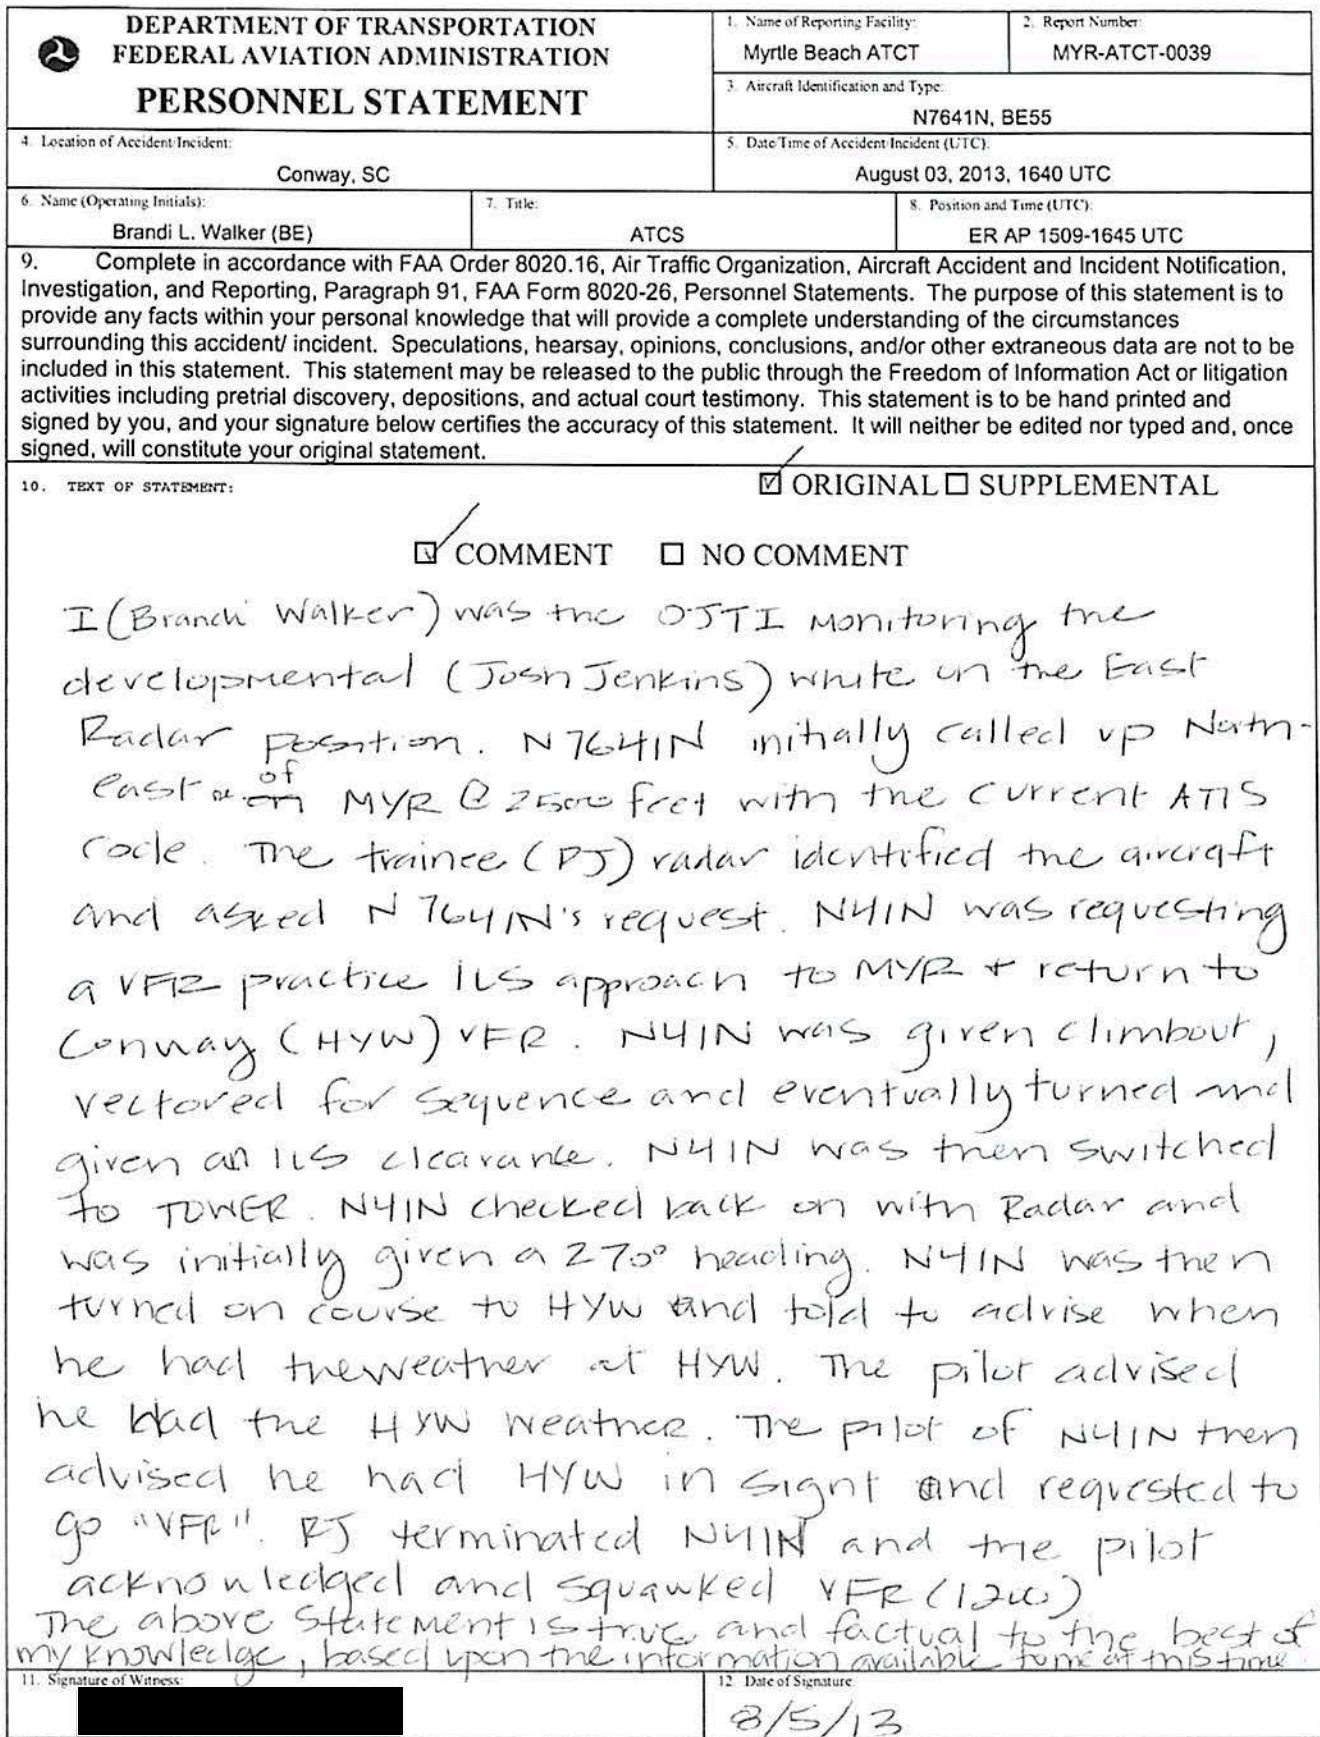 DEPARTMENT OF TRANSPORTATION
FEDERAL AVIATION ADMINISTRATION
PERSONNEL STATEMENT
1. Name of Reporting Facility:
Myrtle Beach ATCT
2. Report Number:
MYR-ATCT-0039
3. Aircraft Identification and Type:
N7641N, BE55
4. Location of Accident/Incident:
Conway, SC
5. Date/Time of Accident/Incident (UTC):
August 03, 2013, 1640 UTC
6. Name (Operating Initials):
Brandi L. Walker (BE)
7. Title:
ATCS
8. Position and Time (UTC):
ER AP 1509-1645 UTC
9. Complete in accordance with FAA Order 8020.16, Air Traffic Organization, Aircraft Accident and Incident Notification,
Investigation, and Reporting, Paragraph 91, FAA Form 8020-26, Personnel Statements. The purpose of this statement is to
provide any facts within your personal knowledge that will provide a complete understanding of the circumstances
surrounding this accident/ incident. Speculations, hearsay, opinions, conclusions, and/or other extraneous data are not to be
included in this statement. This statement may be released to the public through the Freedom of Information Act or litigation
activities including pretrial discovery, depositions, and actual court testimony. This statement is to be hand printed and
signed by you, and your signature below certifies the accuracy of this statement. It will neither be edited nor typed and, once
signed, will constitute your original statement.
10. TEXT OF STATEMENT:
☑ ORIGINAL ☐ SUPPLEMENTAL
☑ COMMENT ☐ NO COMMENT
I (Brandi Walker) was the OJTI monitoring the
developmental (Josh Jenkins) while on the East
Radar position. N7641N initially called up North-
east of MYR @ 2500 feet with the current ATIS
code. The trainee (PJ) radar identified the aircraft
and asked N7641N's request. N41N was requesting
a VFR practice ILS approach to MYR + return to
Conway (HYW) VFR. N41N was given climbout,
vectored for sequence and eventually turned and
given an ILS clearance. N41N was then switched
to TOWER. N41N checked back on with Radar and
was initially given a 270° heading. N41N was then
turned on course to HYW and told to advise when
he had the weather at HYW. The pilot advised
he had the HYW weather. The pilot of N41N then
advised he had HYW in sight and requested to
go "VFR". PJ terminated N41N and the pilot
acknowledged and squawked VFR (1200)
The above statement is true and factual to the best of
my knowledge, based upon the information available to me at this time.
11. Signature of Witness:
12. Date of Signature:
8/5/13